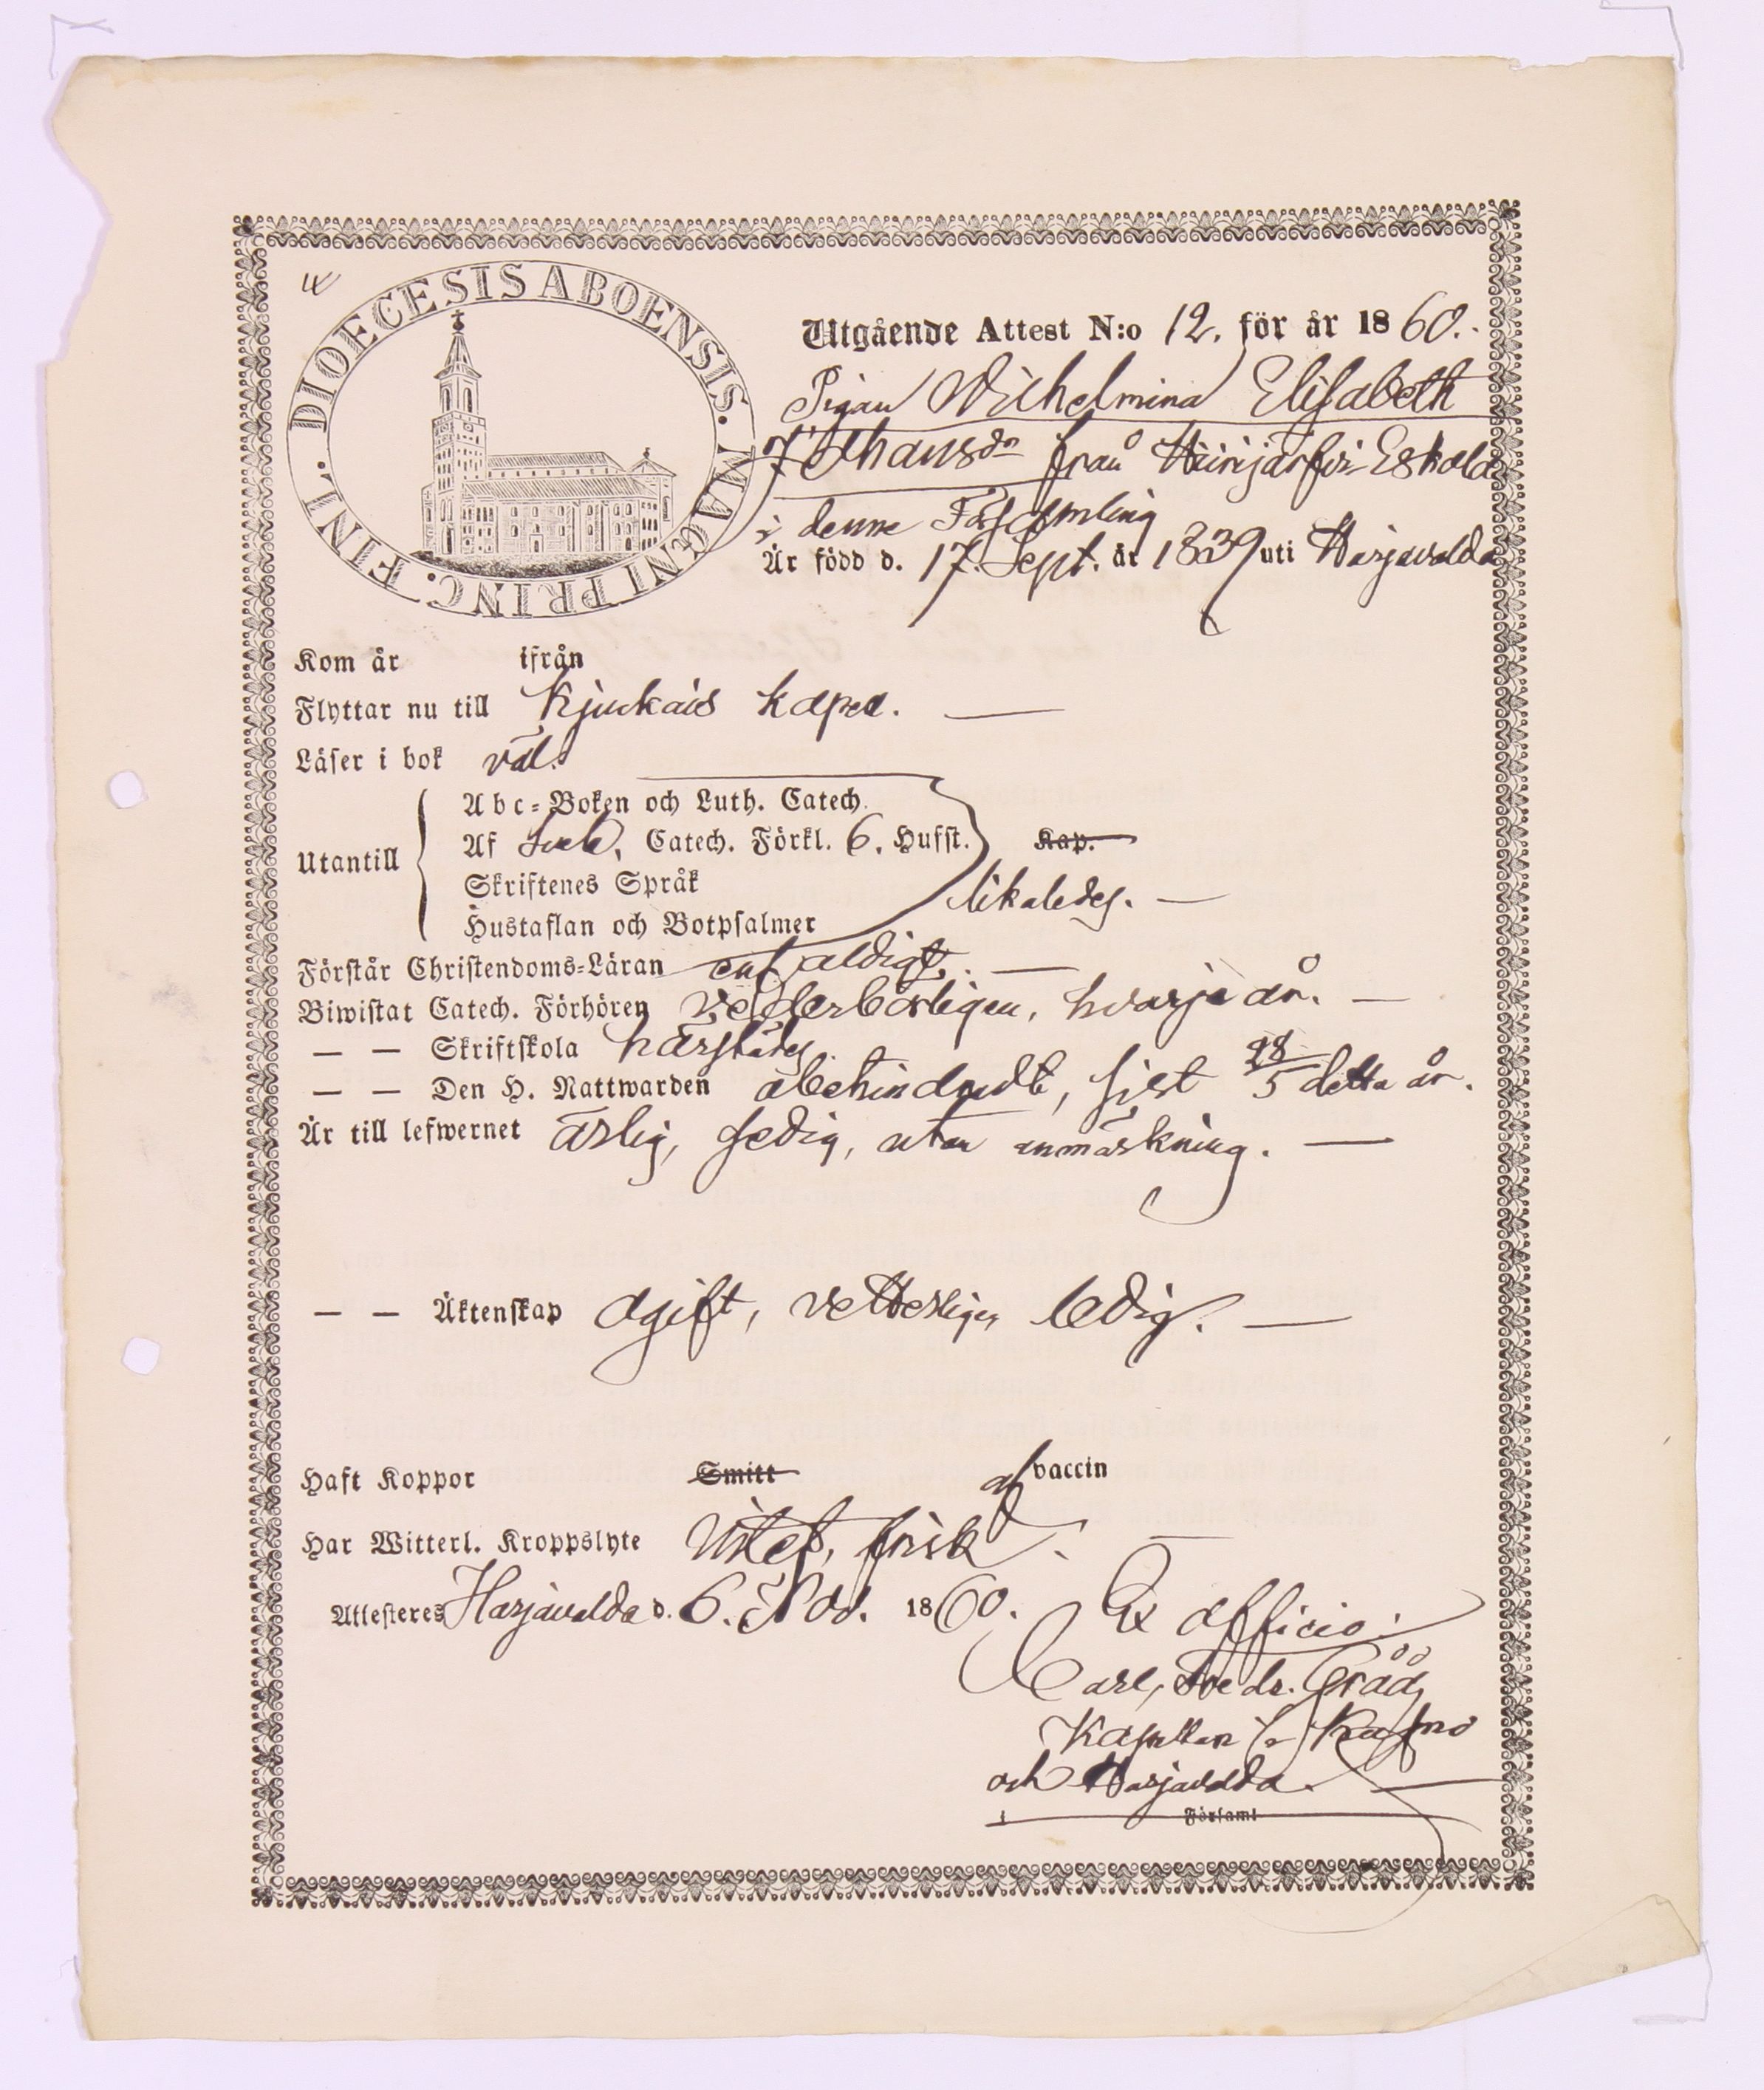 DIOECESIS ABOENSIS. MAGNI PRINC. FINL.
Utgående Attest N:o 12. för år 1860.
Pigan Wilhelmina Elisabeth
Johansdr från Heinijärfvi Eskola
i denne Församling
Är född d. 17. Sept. år 1839 uti Harjavalda
Kom år ifrån
Flyttar nu till Kjukais kapell.
Läser i bok väl.
Abc-Boken och Luth. Catech.
Utantill Af Sveb. Catech. Förkl. 6. Hufst. Kap.
Skriftenes Språk likaledes.
Hustaflan och Botpsalmer
Förstår Christendoms-Läran enfaldigt.
Biwistat Catech. Förhören vederbörligen, hvarje år.
— — Skriftskola härstädes.
— — Den H. Nattwarden obehindradt, sist 28/5 detta år.
Är till lefwernet ärlig, sedig, utan anmärkning.
— — Äktenskap ogift, vetterligen ledig.
Haft Koppor Smitt af vaccin
Har Witterl. Kroppslyte Intet, frisk.
Attesteres Harjavalda d. 6. Nov. 1860. Ex officio:
Carl, Fredr.
Kapellan i
och Harjavalda.
i Församl